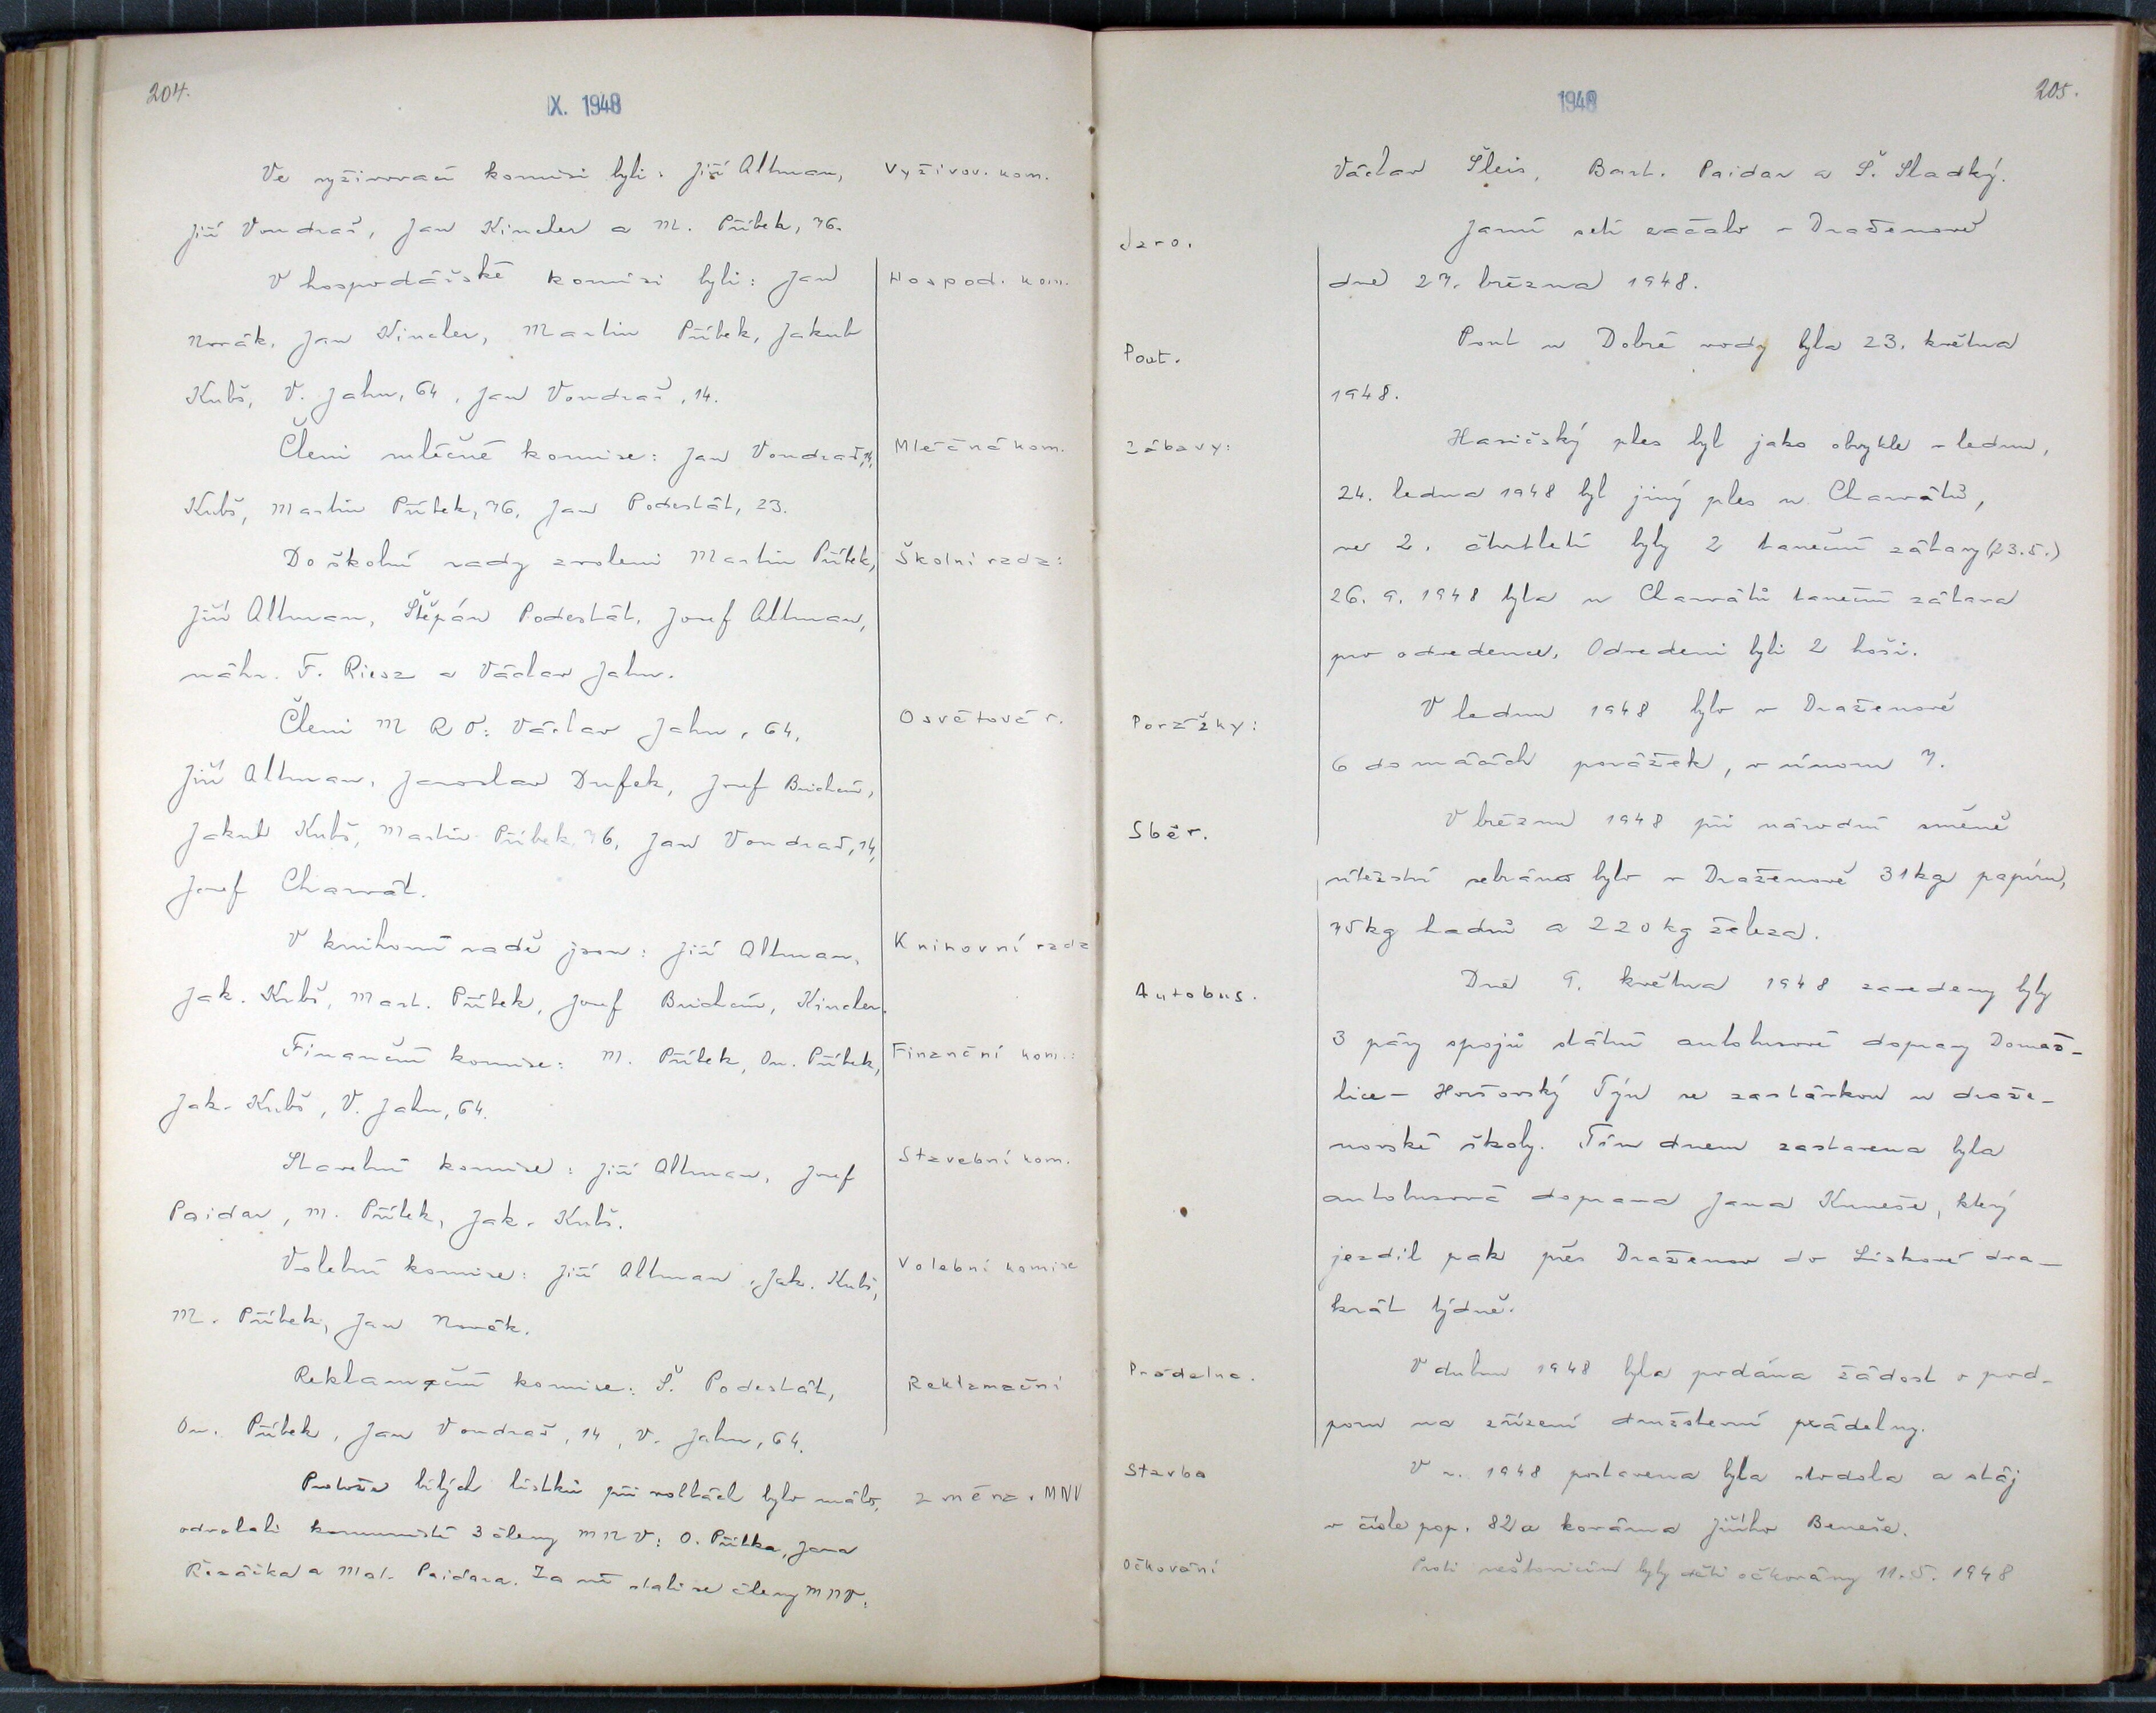 204.
IX. 1948
Ve vyživovací komisi byli: Jiří Altman,
Vyživov. kom.
Jiří Vondraš, Jan Kindler a M. Příbek, 76.
V hospodářské komisi byli: Jan
Hospod. kom.
Novák, Jan Kindler, Martin Příbek, Jakub
Kubš, V. Jahn, 64, Jan Vondraš, 14.
Členi mléčné komise: Jan Vondraš, 14,
Mléčná kom.
Kubš, Martin Příbek, 76, Jan Podestát, 23.
Do školní rady zvoleni Martin Příbek,
Školní rada:
Jiří Altman, Štěpán Podestát, Josef Altman,
náhr. F. Riesz a Václav Jahn.
Členi M R O: Václav Jahn, 64,
Osvětová r.
Jiří Altman, Jaroslav Dufek, Josef Buichar,
Jakub Kubš, Martin Příbek, 76, Jan Vondraš, 14,
Josef Charvát.
V knihovní radě jsou: Jiří Altman,
Knihovní rada
Jak. Kubš, Mart. Příbek, Josef Kindler.
Finanční komise: M. Příbek, On. Příbek,
Finanční kom.:
Jak. Kubš, V. Jahn, 64.
Stavební komise: Jiří Altman, Josef
Stavební kom.
Paidar, M. Příbek, Jak. Kubš.
Volební komise: Jiří Altman, Jak. Kubš,
Volební komise
M. Příbek, Jan Novák.
Reklamační komise: Š. Podestát,
Reklamační
On. Příbek, Jan Vondraš, 14, V. Jahn, 64.
Protože bílých lístků při volbách bylo málo,
změna v MNV
odvolali komunisté 3 členy MNV: O. Příbka, Jana
Řezáčka a Mat. Paidara. Za ně stali se členy MNV:
205.
1948
Václav Šleis, Bart. Paidar a Š. Sladký.
Jarní setí začalo v Draženově
Jaro.
dne 27. března 1948.
Pout u Dobré vody byla 23. května
Pout.
1948.
Hasičský ples byl jako obvykle v lednu,
Zábavy:
24. ledna 1948 byl jiný ples u Charvátů,
ve 2. čtvrtletí byly 2 taneční zábavy (23.5.)
26. 9. 1948 byla u Charvátů taneční zábava
pro odvedence. Odvedeni byli 2 hoši.
V lednu 1948 bylo v Draženově
Porážky:
6 domácích porážek, v únoru 7.
V březnu 1948 při národní směně
Sběr.
vítězství sebráno bylo v Draženově 31kg papíru,
75kg hadrů a 220kg železa.
Dne 9. května 1948 zavedeny byly
Autobus.
3 páry spojů státní autobusové dopravy Domaž-
lice - Horšovský Týn se zastávkou u draže-
novské školy. Tím dnem zastavena byla
autobusová doprava Jana Kuneše, který
jezdil pak přes Draženov do Lískové dva-
krát týdně.
V dubnu 1948 byla podána žádost o pod-
Prádelna.
poru na zřízení družstevní prádelny.
V r. 1948 postavena byla stodola a stáj
Stavba
v čísle pop. 82 a kovárna Jiřího Beneše.
Proti neštovicím byly děti očkovány 11. 5. 1948
Očkování